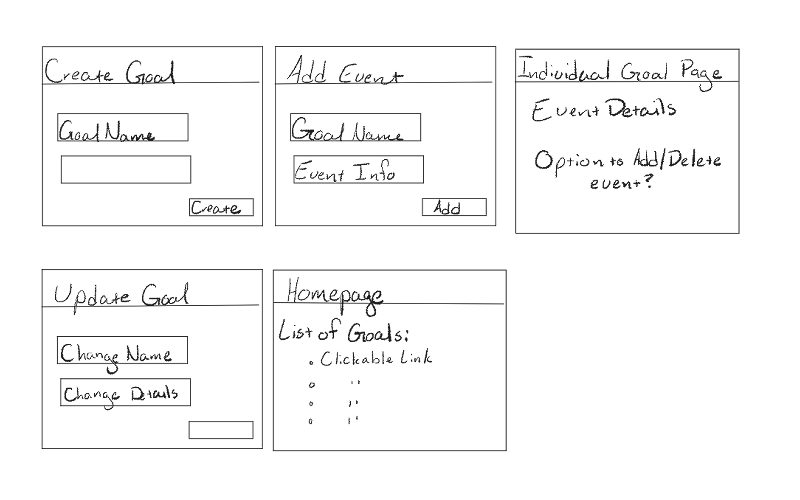 Create Goal
Goal Name
Create
Add Event
Goal Name
Event Info
Add
Individual Goal Page
Event Details
Option to Add/Delete
event?
Update Goal
Change Name
Change Details
Homepage
List of Goals:
• Clickable Link
• "
• "
• "